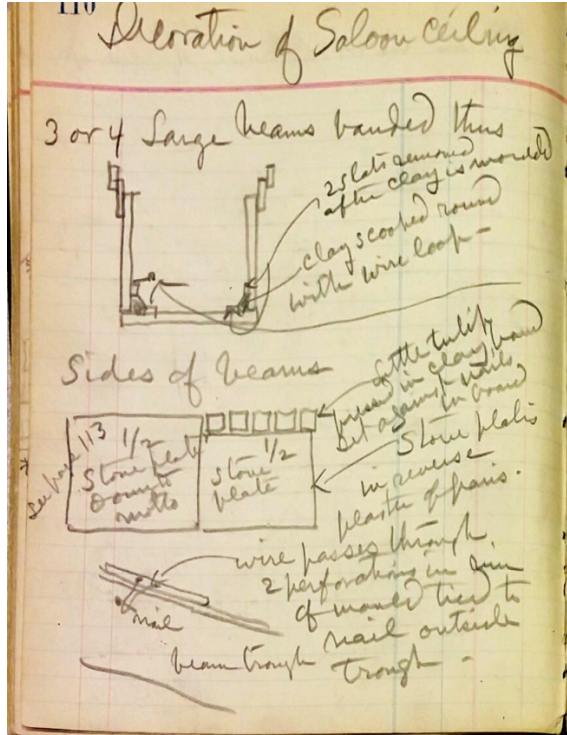 110
Decoration of Saloon Ceiling
3 or 4 Large beams banded thus
2 slats removed
after clay is moulded
clay scooped round
with wire loop -
Sides of beams
little tulip
pressed in clay band
set against nails
in board
See page 113
1/2
Stove plate
motto
1/2
Stove
plate
Stove plates
in reverse
plaster of paris.
wire passes through
2 perforations in rim
of mould tied to
nail outside
trough -
nail
beam trough